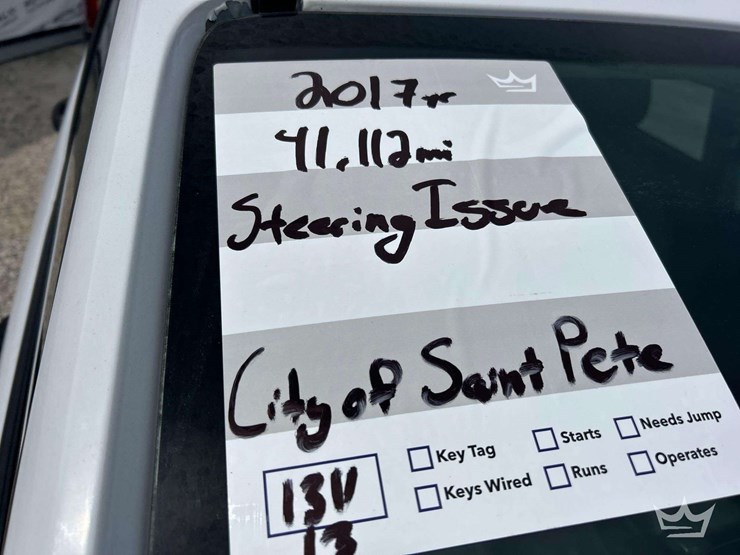 2017yr
41,112mi
Steering Issue
City of Saint Pete
Key Tag
Starts
Needs Jump
Keys Wired
Runs
Operates
13V
13